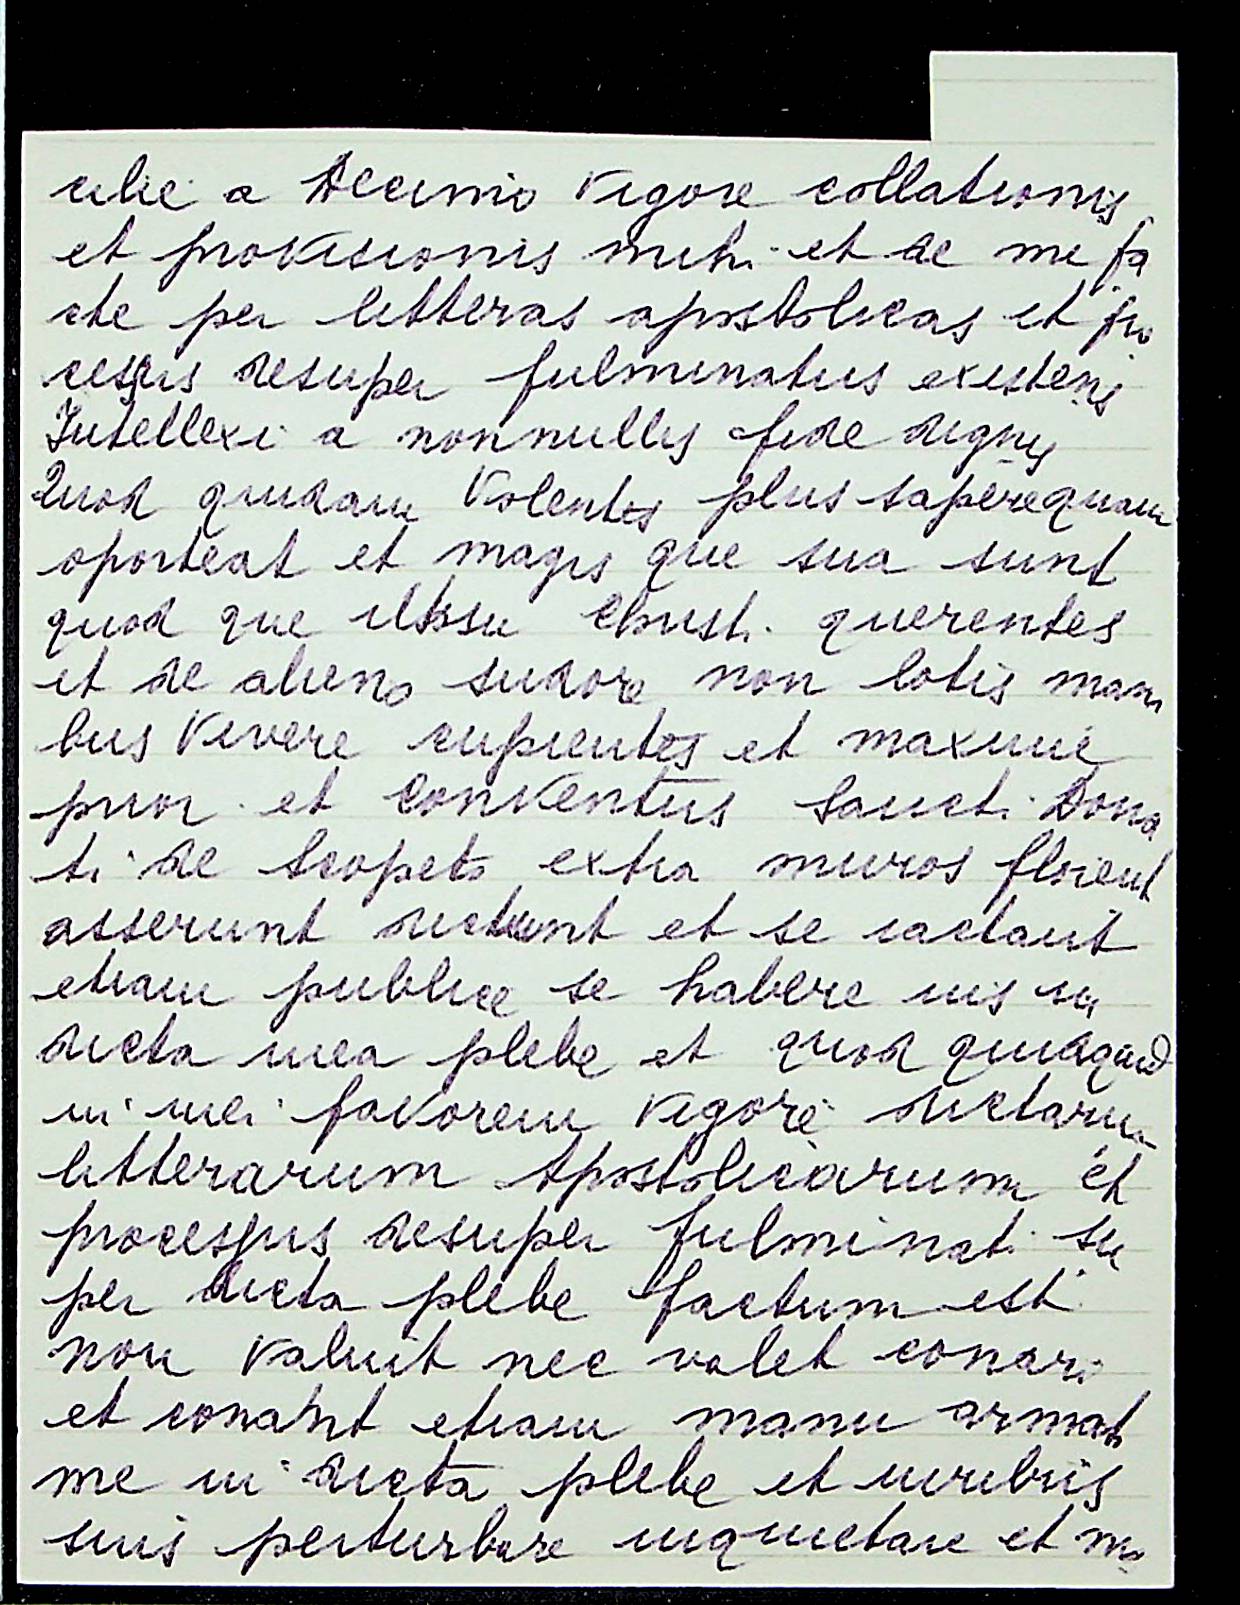 cilic a Decimo vigore collationis
et provisionis mihi et de me fa
cte per litteras apostolicas et pro
cessus desuper fulminatus existens
Intellexi a nonnullis fide dignis
Quod quidam volentes plus sapere quam
oporteat et magis que sua sunt
quod que Christi querentes
et de alieno sudore non lotis mani
bus vivere cupientes et maxime
prior et conventus Sancti Dona
ti de Scopeto extra muros florent
asserunt dictunt et se iactant
etiam publice se habere ius in
dicta mea plebe et quod quidquid
in mei favorem vigore dictarum
litterarum Apostolicarum et
processus desuper fulminati su
per dicta plebe factum est
non valuit nec valet conari
et conant etiam manu armat
me in dicta plebe et iuribus
suis perturbare inquietare et mo